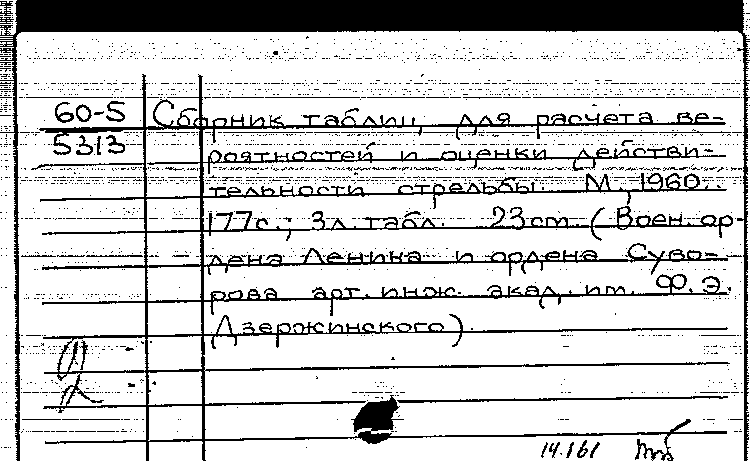 60-5 Сборник таблиц для расчета ве=
5313 роятностей и оценки действи=
тельности стрельбы. М., 1960.
177с.; 3л. табл. 23см (Воен. ор-
дена Ленина и ордена Суво=
рова арт. инж. акад. им. Ф.Э.
Дзержинского).
14.161